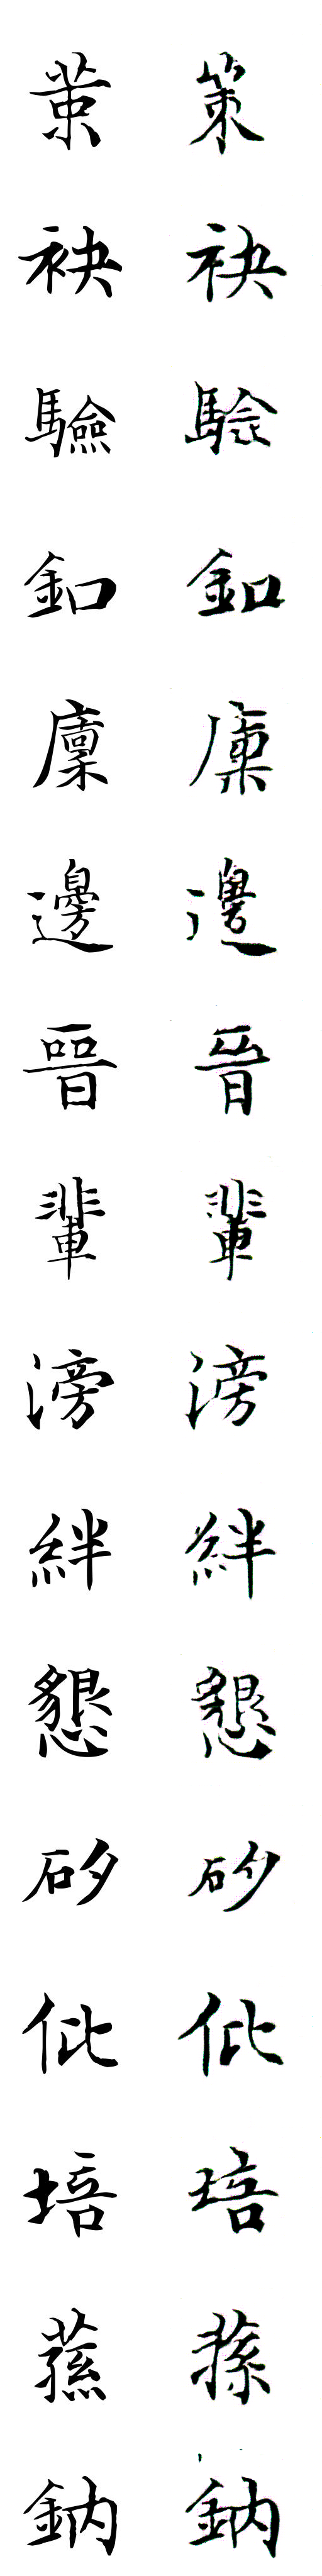 策 策
袂 袂
驗 驗
釦 釦
廩 廩
邊 邊
晉 晉
輩 輩
滂 滂
絆 絆
懇 懇
矽 矽
仳 仳
培 培
蓀 蓀
鈉 鈉